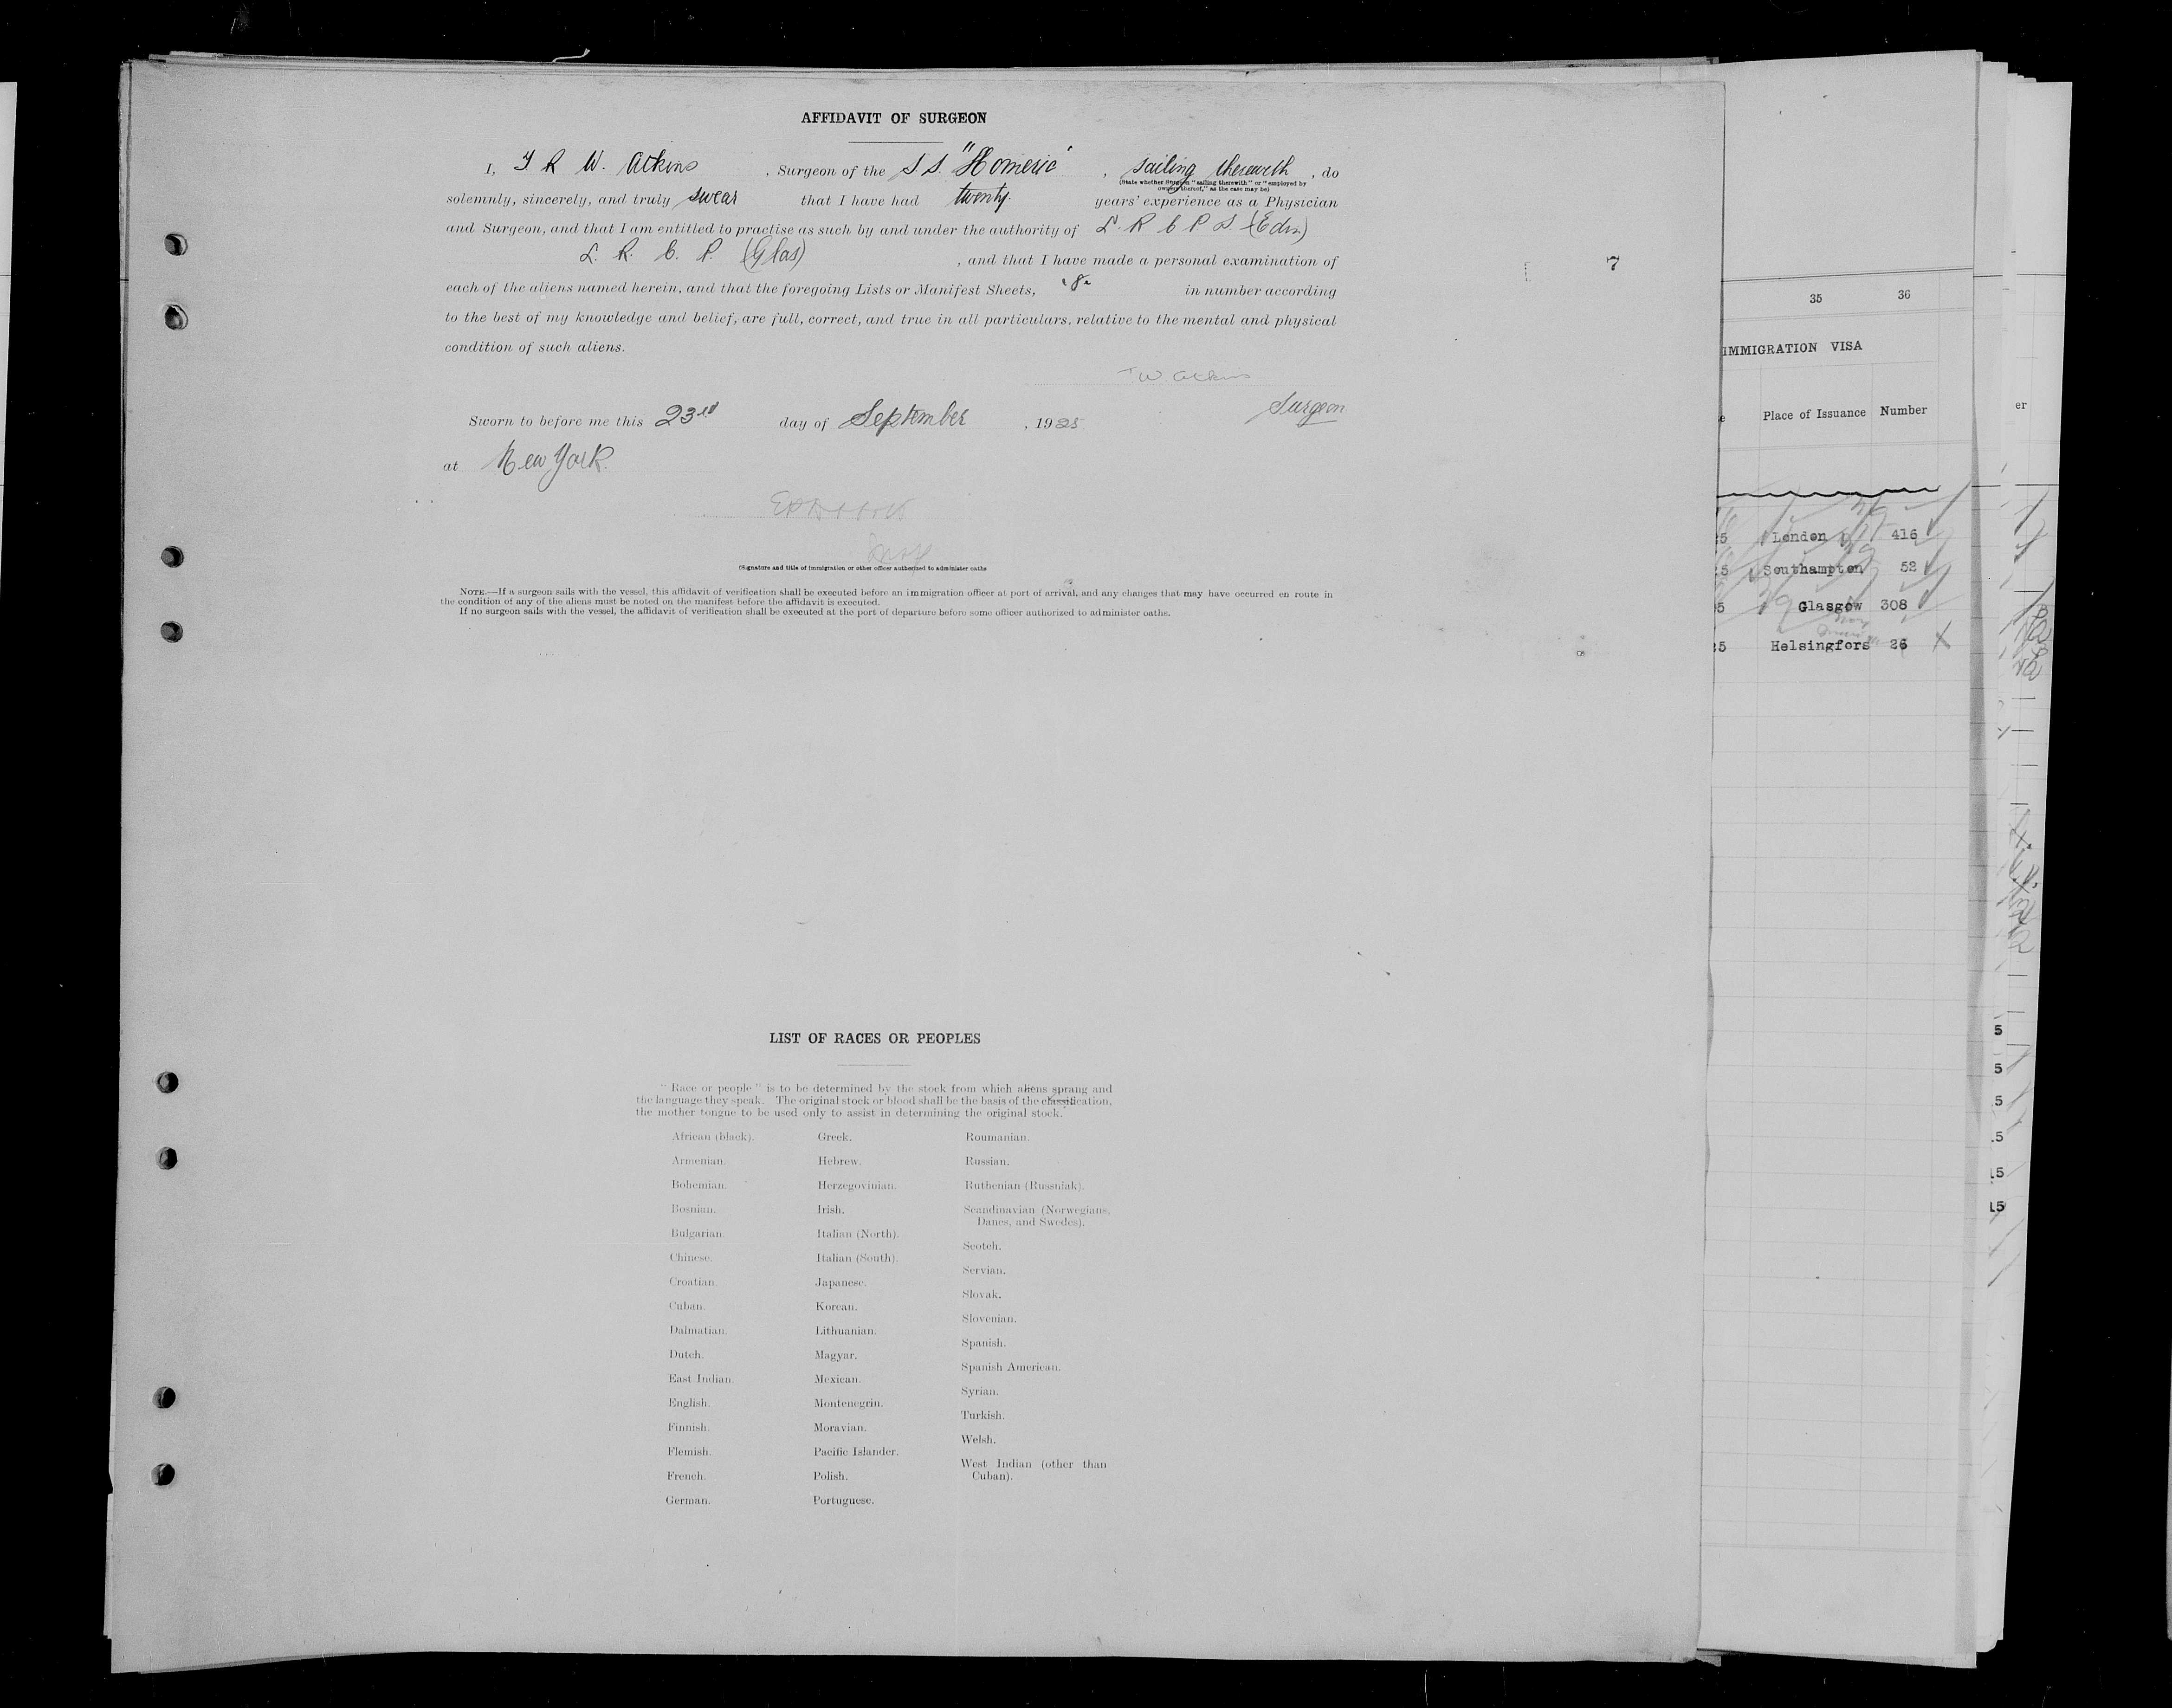 AFFIDAVIT OF SURGEON
I, T R W. Atkins, Surgeon of the S S. "Homeric", sailing therewith, do
(State whether Surgeon "sailing therewith" or "employed by
owners thereof," as the case may be)
solemnly, sincerely, and truly swear that I have had twenty years' experience as a Physician
and Surgeon, and that I am entitled to practise as such by and under the authority of L. R C P S (Edin)
L. R. C. P. (Glas), and that I have made a personal examination of
each of the aliens named herein, and that the foregoing Lists or Manifest Sheets, 8 in number according
to the best of my knowledge and belief, are full, correct, and true in all particulars, relative to the mental and physical
condition of such aliens.
W. Atkins
Surgeon
Sworn to before me this 23rd day of September, 1925
at New York.
(Signature and title of immigration or other officer authorized to administer oaths
NOTE.—If a surgeon sails with the vessel, this affidavit of verification shall be executed before an immigration officer at port of arrival, and any changes that may have occurred en route in
the condition of any of the aliens must be noted on the manifest before the affidavit is executed.
If no surgeon sails with the vessel, the affidavit of verification shall be executed at the port of departure before some officer authorized to administer oaths.
7
8
LIST OF RACES OR PEOPLES
"Race or people" is to be determined by the stock from which aliens sprang and
the language they speak. The original stock or blood shall be the basis of the classification,
the mother tongue to be used only to assist in determining the original stock.
African (black).
Armenian.
Bohemian.
Bosnian.
Bulgarian.
Chinese.
Croatian.
Cuban.
Dalmatian.
Dutch.
East Indian.
English.
Finnish.
Flemish.
French.
German.
Greek.
Hebrew.
Herzegovinian.
Irish.
Italian (North).
Italian (South).
Japanese.
Korean.
Lithuanian.
Magyar.
Mexican.
Montenegrin.
Moravian.
Pacific Islander.
Polish.
Portuguese.
Roumanian.
Russian.
Ruthenian (Russniak).
Scandinavian (Norwegians,
Danes, and Swedes).
Scotch.
Servian.
Slovak.
Slovenian.
Spanish.
Spanish American.
Syrian.
Turkish.
Welsh.
West Indian (other than
Cuban).
35 36
IMMIGRATION VISA
e Place of Issuance Number
25 London 416
25 Southampton 52
25 Glasgow 308
25 Helsingfors 26
er
5
5
5
15
15
15